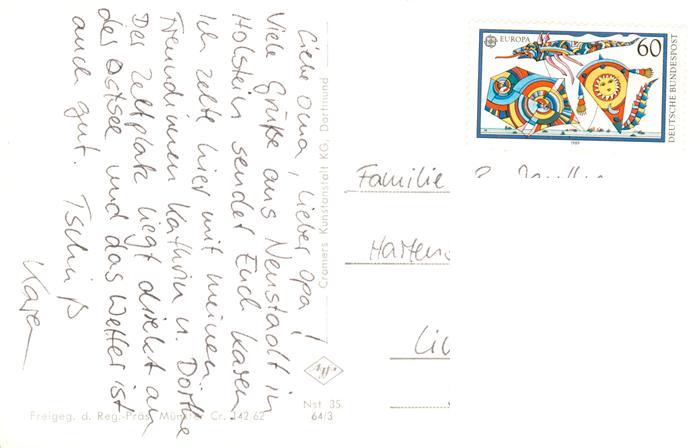 Liebe Oma, lieber Opa!
Viele Grüße aus Neustadt in
Holstein sendet Euch Karen
Ich zelte hier mit meinen
Freundinnen Kathrin u. Dörthe
Der Zeltplatz liegt direkt an
der Ostsee und das Wetter ist
auch gut. Tschüß
Karen
Cramers Kunstanstalt KG, Dortmund
EUROPA
60
DEUTSCHE BUNDESPOST
1989
Familie
Nst 35
64/3
Freigeg. d. Reg.-Präs. Münster Cr. 142 62